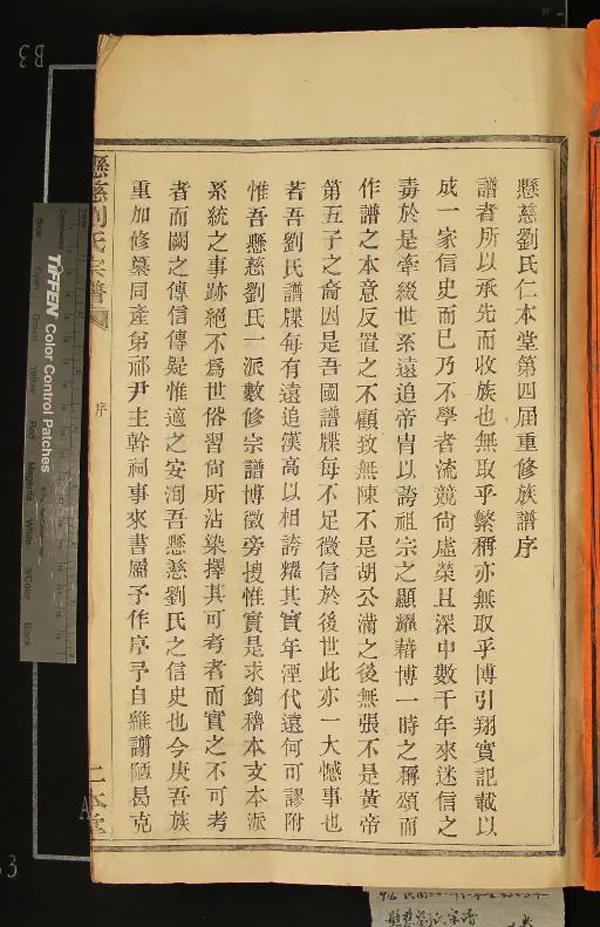 懸慈劉氏仁本堂第四屆重修族譜序
譜者所以承先而收族也無取乎繁稱亦無取乎博引翔實記載以
成一家信史而已乃不學者流競尙虛榮且深中數千年來迷信之
毒於是牽綴世系遠追帝冑以誇祖宗之顯耀藉博一時之稱頌而
作譜之本意反置之不顧致無陳不是胡公滿之後無張不是黃帝
第五子之裔因是吾國譜牒每不足徵信於後世此亦一大憾事也
若吾劉氏譜牒每有遠追漢高以相誇耀其實年湮代遠何可謬附
惟吾懸慈劉氏一派數修宗譜博徵旁搜惟實是求鉤稽本支本派
系統之事跡絕不爲世俗習尙所沾染擇其可考者而實之不可考
者而闕之傳信傳疑惟適之安洵吾懸慈劉氏之信史也今庚吾族
重加修纂同產弟祁尹主幹祠事來書屬予作序予自維譾陋曷克
懸慈劉氏宗譜
序
仁本堂
TIFFEN Color Control Patches
Blue
Cyan
Green
Yellow
Red
Magenta
White
3/Color
Black
B3
懸慈劉氏宗譜